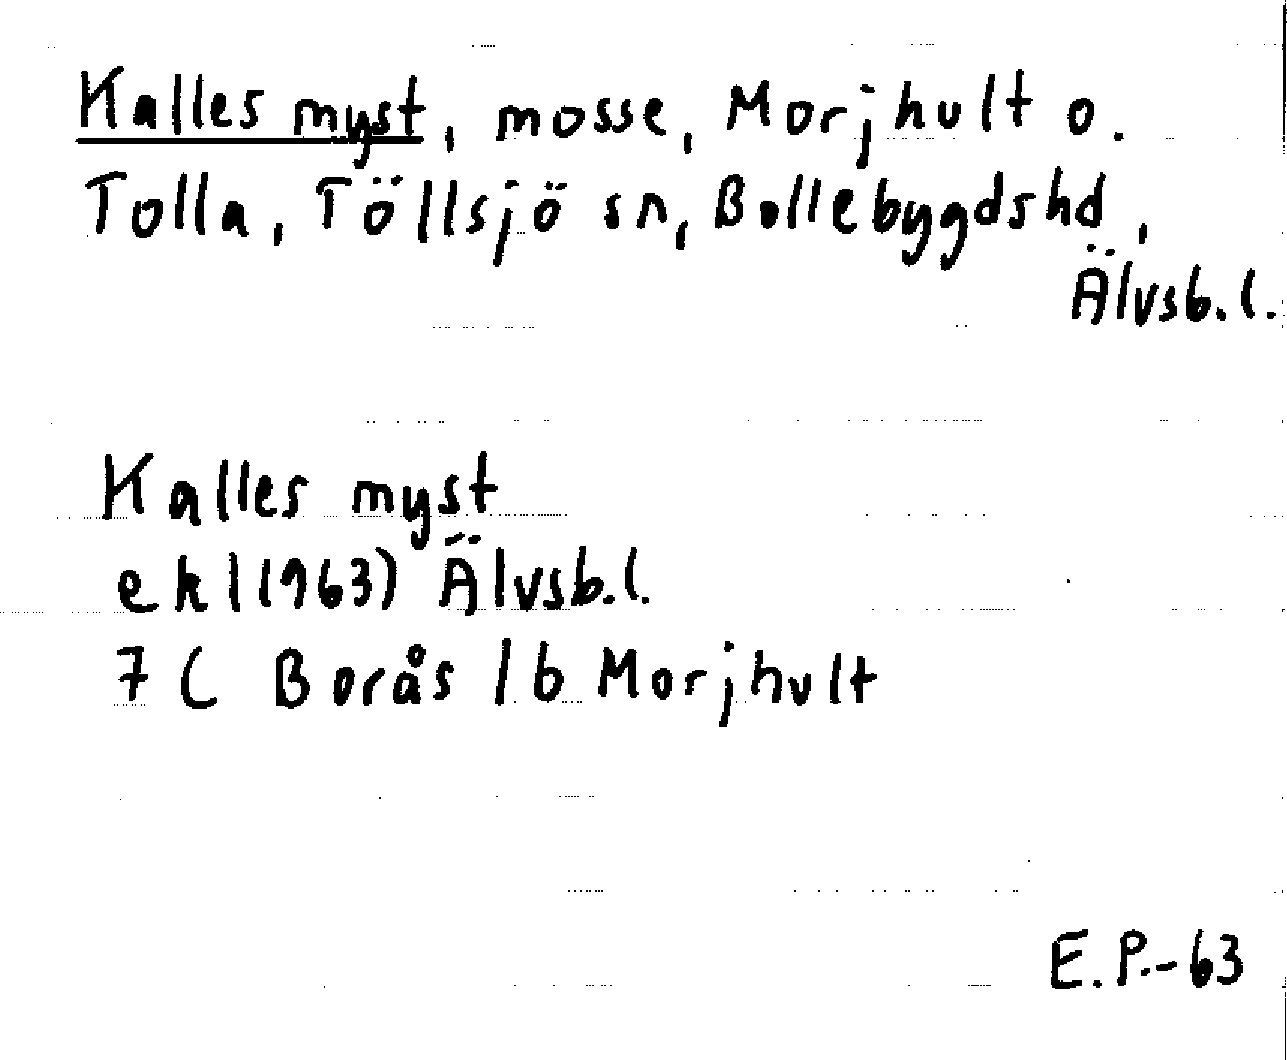 Kalles myst, mosse, Morjhult o.
Tolla, Töllsjö sn, Bollebygds hd,
Älvsb. l.
Kalles myst
ekl (1963) Älvsb. l.
7 C Borås 1 b Morjhult
E. P. - 63